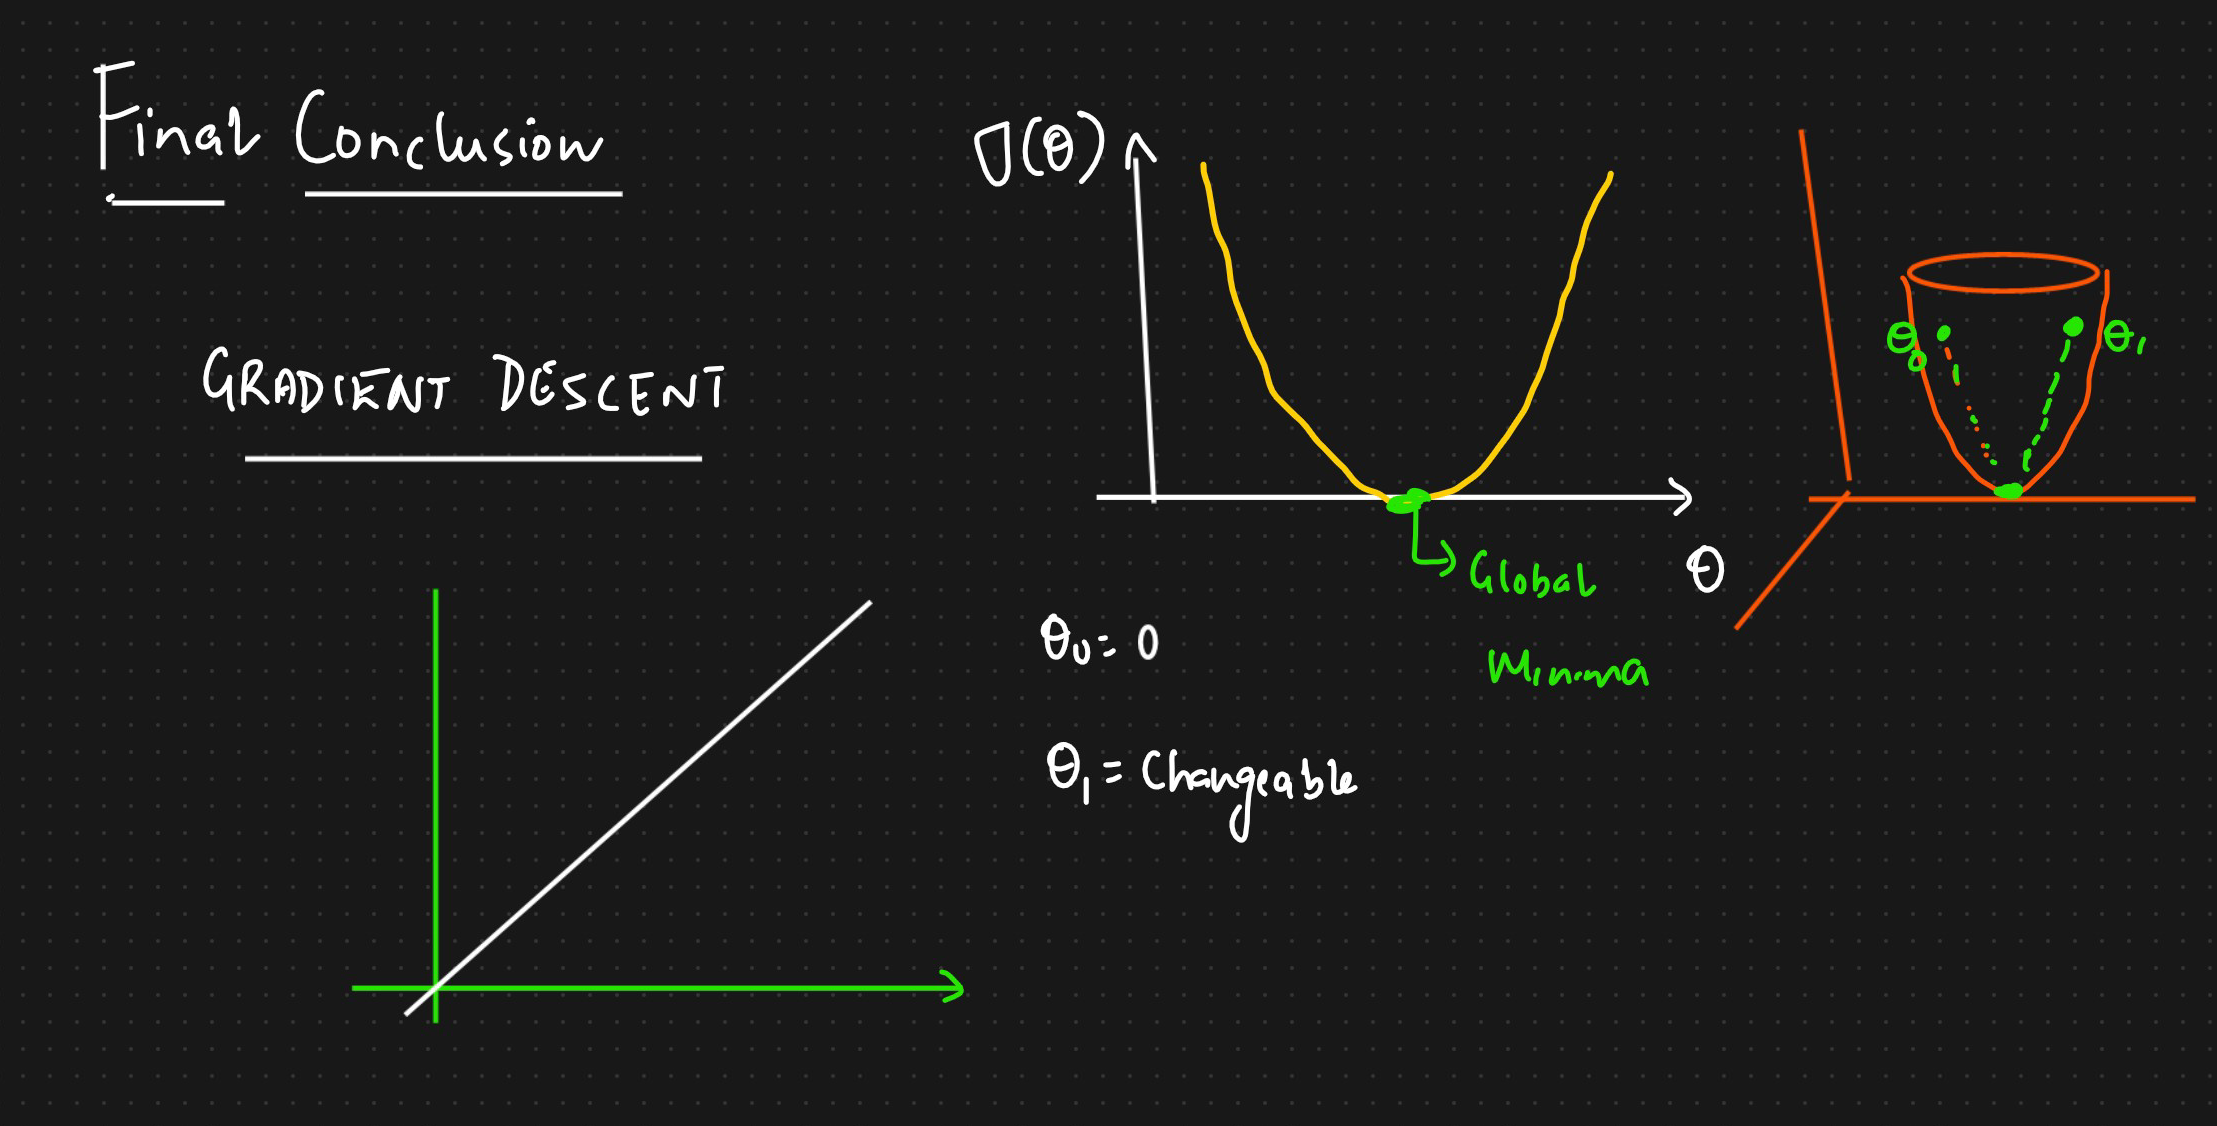 Final Conclusion
GRADIENT DESCENT
J(θ)
θ
Global
Minima
θ₀ = 0
θ₁ = Changeable
θ₀
θ₁